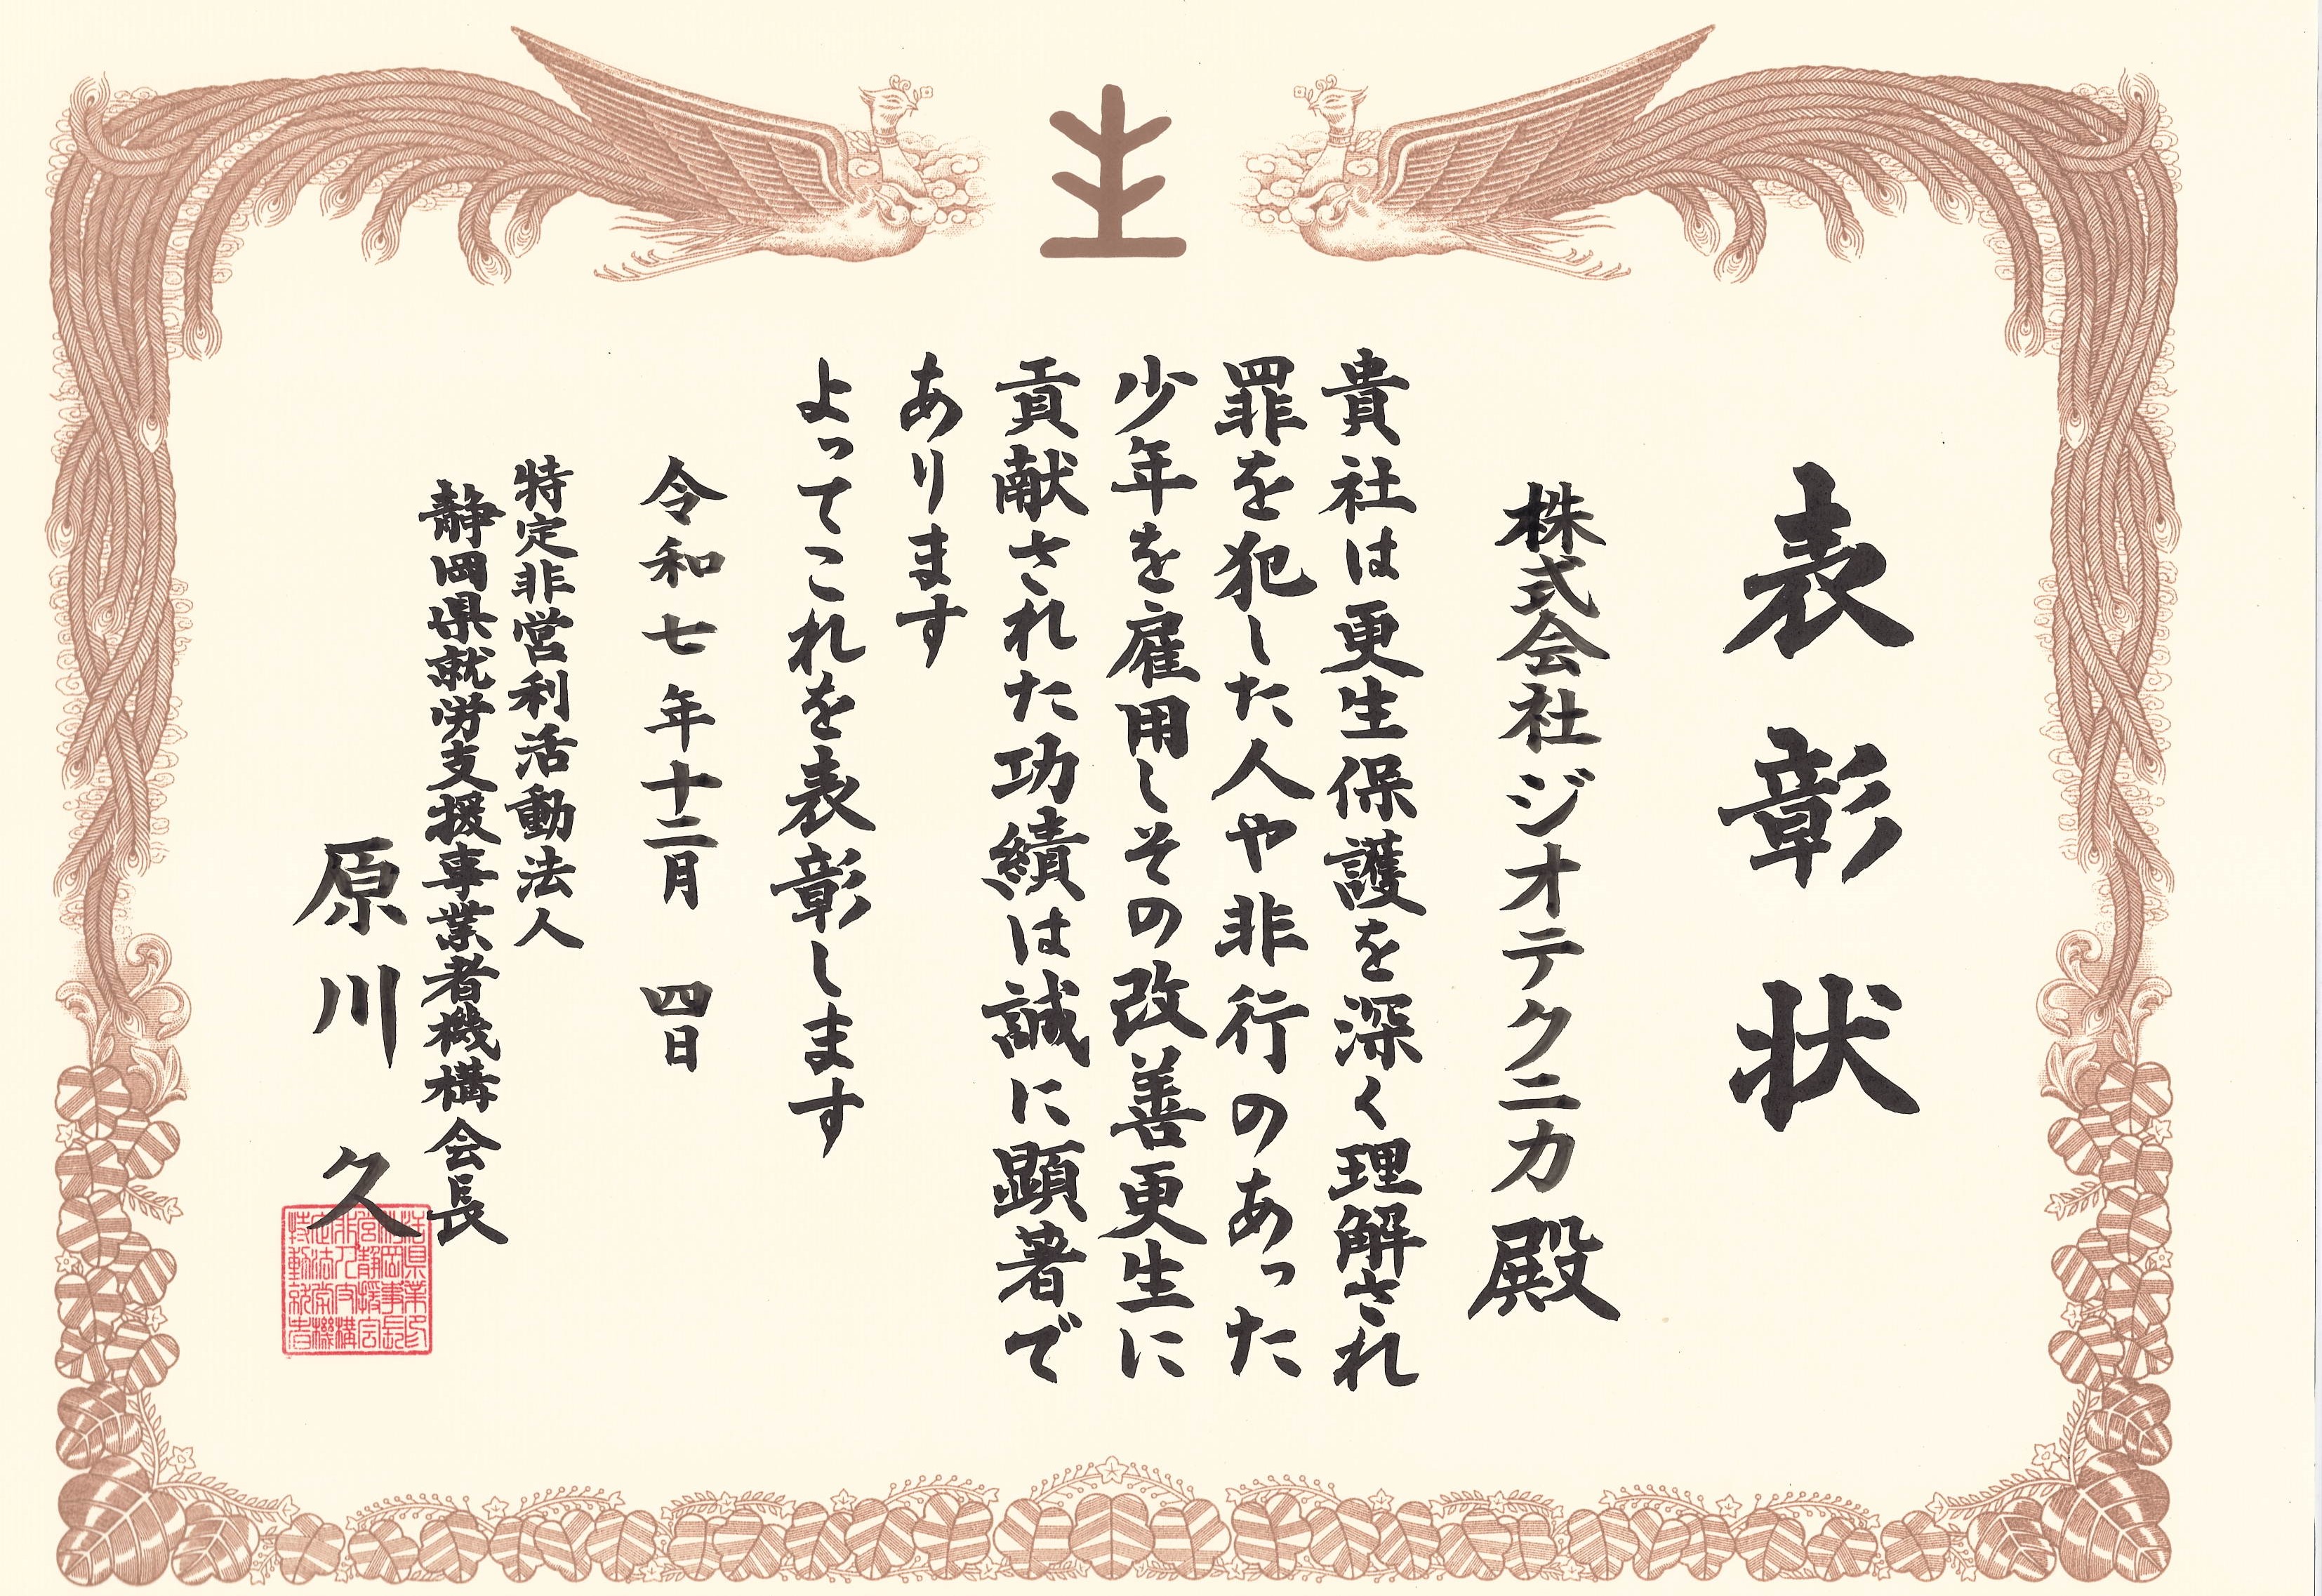 表彰状
株式会社ジオテクニカ殿
貴社は更生保護を深く理解され
罪を犯した人や非行のあった
少年を雇用しその改善更生に
貢献された功績は誠に顕著で
あります
よってこれを表彰します
令和七年十二月 四日
特定非営利活動法人
静岡県就労支援事業者機構会長
原川 久